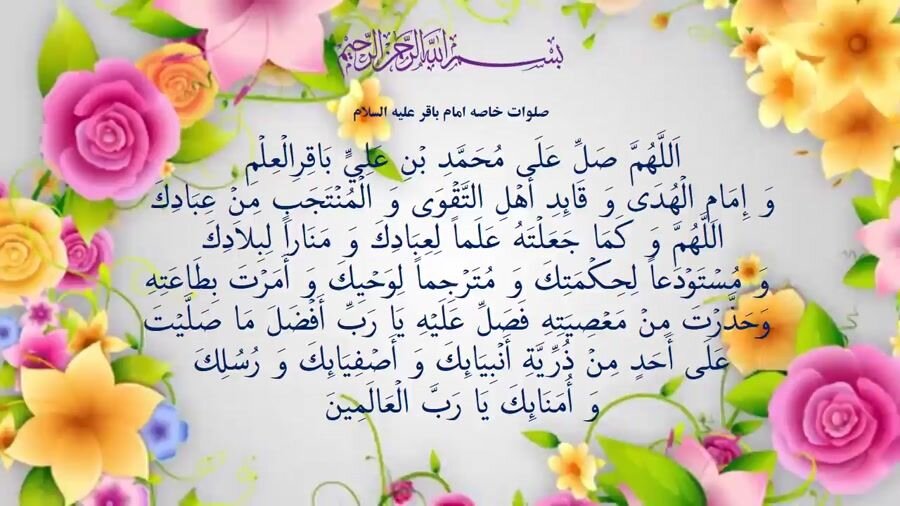 بسم الله الرحمن الرحیم
صلوات خاصه امام باقر علیه السلام
اَللَّهُمَّ صَلِّ عَلَى مُحَمَّدِ بْنِ عَلِيٍّ بَاقِرِالْعِلْمِ
وَ إِمَامِ الْهُدَى وَ قَائِدِ أَهْلِ التَّقْوَى وَ الْمُنْتَجَبِ مِنْ عِبَادِكَ
اللَّهُمَّ وَ كَمَا جَعَلْتَهُ عَلَماً لِعِبَادِكَ وَ مَنَاراً لِبِلَادِكَ
وَ مُسْتَوْدَعاً لِحِكْمَتِكَ وَ مُتَرْجِماً لِوَحْيِكَ وَ أَمَرْتَ بِطَاعَتِهِ
وَحَذَّرْتَ مِنْ مَعْصِيَتِهِ فَصَلِّ عَلَيْهِ يَا رَبِّ أَفْضَلَ مَا صَلَّيْتَ
عَلَى أَحَدٍ مِنْ ذُرِّيَّةِ أَنْبِيَائِكَ وَ أَصْفِيَائِكَ وَ رُسُلِكَ
وَ أُمَنَائِكَ يَا رَبَّ الْعَالَمِينَ